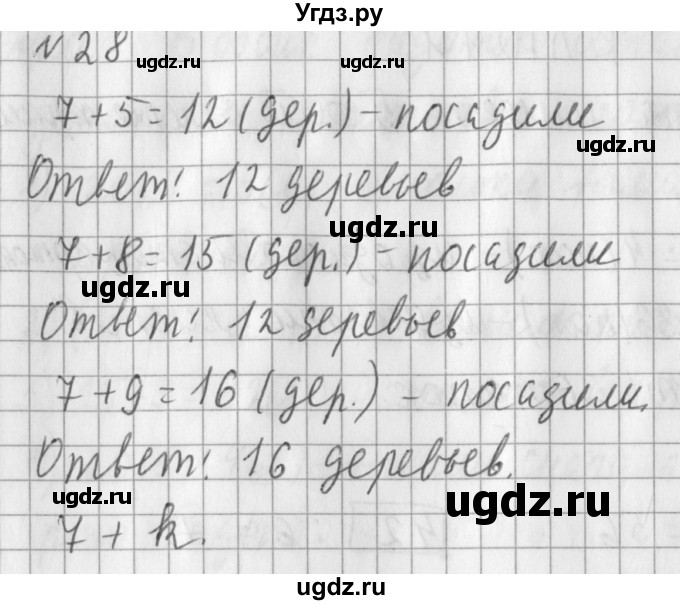 Угдз.ру
№28
ugdz.ru ugdz.ru
7+5=12 (дер.) - посадили
ugdz.ru
Ответ: 12 деревьев
ugdz.ru
7+8=15 (дер.) - посадили
ugdz.ru
Ответ: 12 деревьев
7+9=16 (дер.) - посадили.
Ответ: 16 деревьев.
ugdz.ru ugdz.ru
7+k.
ugdz.ru
ugdz.ru